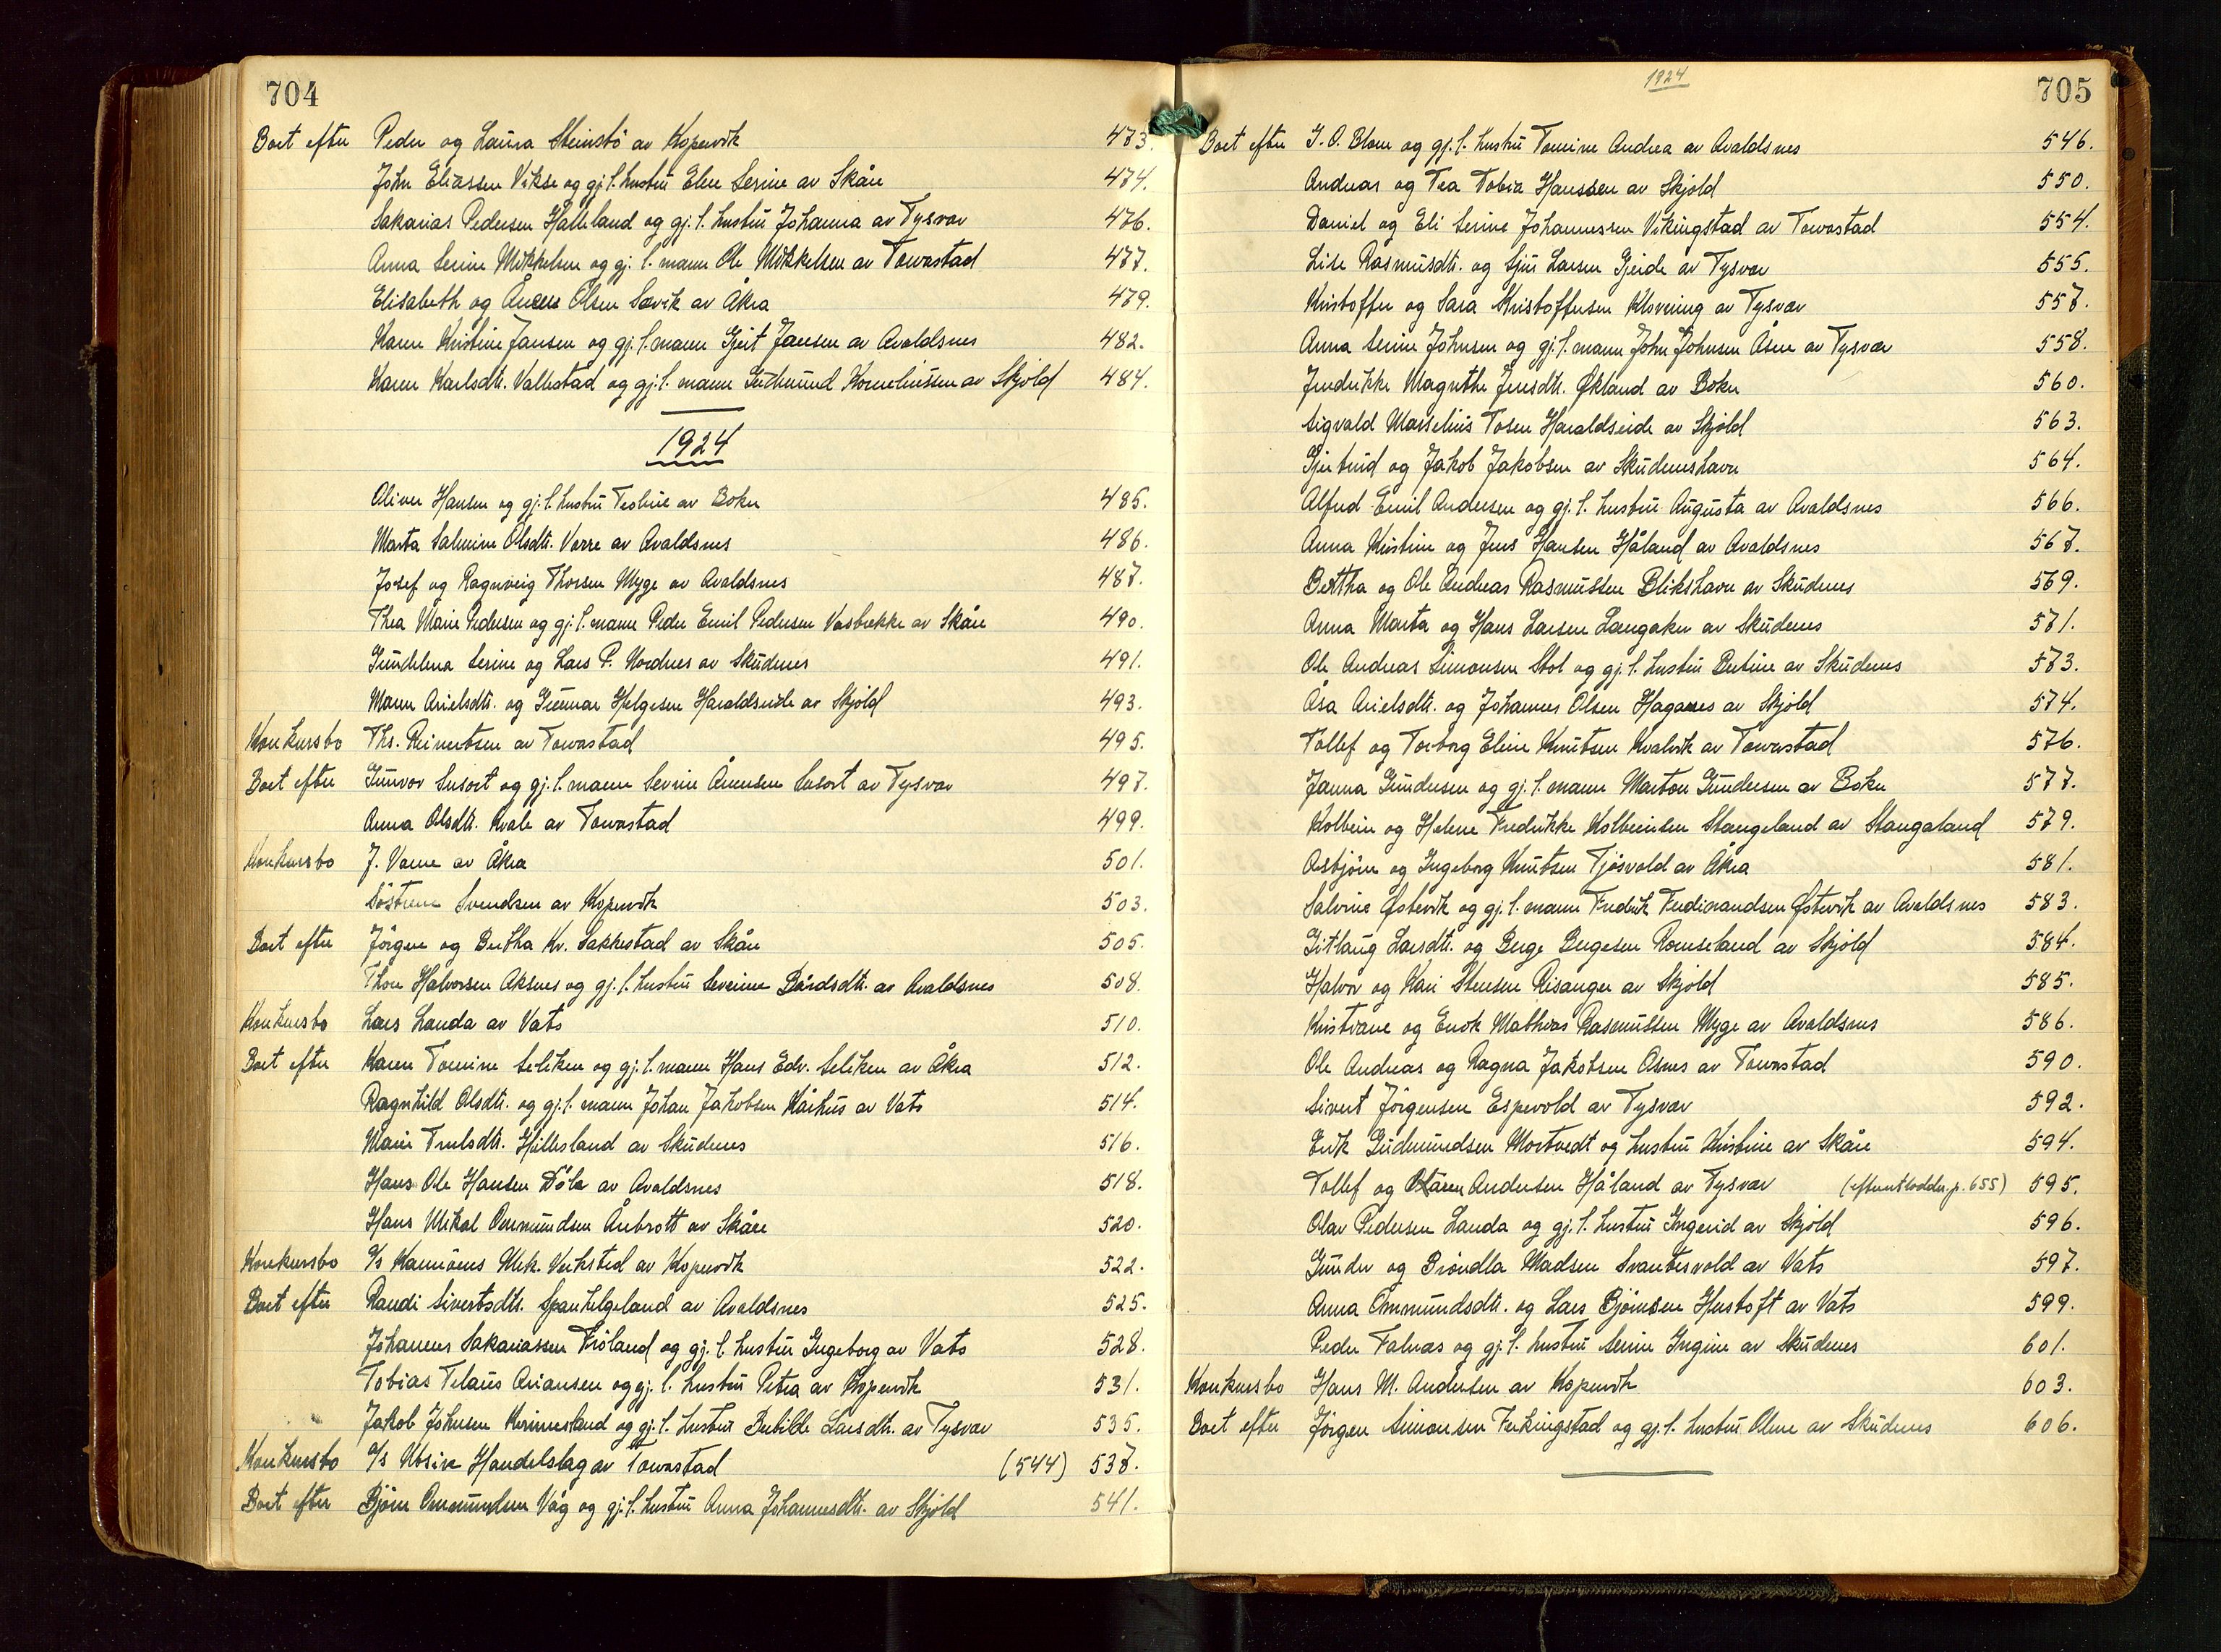 704
Boet efter Peder og Laura Steinstö av Kopervik 473.
John Eliassen Vikse og gj.l. hustru Elen Serine av Skåre 474.
Sakarias Pedersen Halleland og gj.l. hustru Johanna av Tysvær 476.
Anna Serine Mikkelsen og gj.l. mann Ole Mikkelsen av Torvastad 477.
Elisabeth og Olsen Sævik av Åkra 479.
Karen Kristine Jansen og gj.l. mann Gjert Jansen av Avaldsnes 482.
Karen Karlsdtr. Vallestad og gj.l. mann Gudmund Korneliussen av Skjold 484.
1924
Oliver Hansen og gj.l. hustru Teoline av Bokn 485.
Marta Salmine Olsdtr. Vorre av Avaldsnes 486.
Josef og Ragnveig Thorsen Myge av Avaldsnes 487.
Thea Marie Pedersen og gj.l. mann Peder Emil Pedersen Vasbrekke av Skåre 490.
Gundelena Serine og Lars P. Nordnes av Skudenes 491.
Maren Arielsdtr. og Gunnar Helgesen Haraldseide av Skjold 493.
Konkursbo Ths. Reinertsen av Torvastad 495.
Boet efter Gunvor Susort og gj.l. mann Severin Ånensen Susort av Tysvær 497.
Anna Olsdtr. Kvale av Torvastad 499.
Konkursbo J. Varne av Åkra 501.
Söstrene Svendsen av Kopervik 503.
Boet efter Jörgen og Bertha Kr. Sakkestad av Skåre 505.
Thore Halvorsen Aksnes og gj.l. hustru Severine Bårdsdtr. av Avaldsnes 508.
Konkursbo Lars Landa av Vats 510.
Boet efter Karen Tomine Seliken og gj.l. mann Hans Edv. Seliken av Åkra 512.
Ragnhild Olsdtr. og gj.l. mann Johan Jakobsen Kårhus av Vats 514.
Marie Trulsdtr. Hillesland av Skudenes 516.
Hans Ole Hansen Döle av Avaldsnes 518.
Hans Mikal Ommundsen Aubrott av Skåre 520.
Konkursbo A/s Karmöens Mek. Verksted av Kopervik 522.
Boet efter Randi Sivertsdtr. Spanhelgeland av Avaldsnes 525.
Johannes Sakariassen Fröland og gj.l. hustru Ingeborg av Vats 528.
Tobias Telaus Ariansen og gj.l. hustru Petra av Kopervik 531.
Jakob Johnsen Krinnesland og gj.l. hustru Bertilde Larsdtr. av Tysvær 535.
Konkursbo A/s Utsira Handelslag av Torvastad (544) 537.
Boet efter Björn Ommundsen Våg og gj.l. hustru Anna Johannesdtr. av Skjold 541.
1924
705
Boet efter J.O. Blom og gj.l. hustru Tomine Andrea av Avaldsnes 546.
Andreas og Tea Tobia Hanssen av Skjold 550.
Daniel og Eli Serine Johannessen Vikingstad av Torvastad 554.
Lise Rasmusdtr. og Sjur Larsen Gjeide av Tysvær 555.
Kristoffer og Sara Kristoffersen Klovning av Tysvær 557.
Anna Serine Johnsen og gj.l. mann John Johnsen Åsen av Tysvær 558.
Fredrikke Magrethe Jensdtr. Økland av Bokn 560.
Sigvald Marselius Tosen Haraldseide av Skjold 563.
Gjertrud og Jakob Jakobsen av Skudeneshavn 564.
Alfred Emil Andersen og gj.l. hustru Augusta av Avaldsnes 566.
Anna Kristine og Jens Hansen Håland av Avaldsnes 567.
Bertha og Ole Andreas Rasmussen Blikshavn av Skudenes 569.
Anna Marta og Hans Larsen Langaker av Skudenes 571.
Ole Andreas Simonsen Stol og gj.l. hustru Bertine av Skudenes 573.
Åsa Arielsdtr. og Johannes Olsen Haganes av Skjold 574.
Tollef og Torborg Eline Knutsen Kvalvik av Torvastad 576.
Janna Gundersen og gj.l. mann Marton Gundersen av Bokn 577.
Kolbein og Helene Fredrikke Kolbeinsen Stangeland av Stangaland 579.
Asbjörn og Ingeborg Knutsen Tjösvold av Åkra 581.
Salvine Østevik og gj.l. mann Fredrik Ferdinandsen Østevik av Avaldsnes 583.
Gitlaug Larsdtr. og Berge Bergesen Romseland av Skjold 584.
Halvor og Kari Stensen Risanger av Skjold 585.
Kristiane og Enok Mathias Rasmussen Myge av Avaldsnes 586.
Ole Andreas og Ragna Jakobsen Osnes av Torvastad 590.
Sivert Jörgensen Espevold av Tysvær 592.
Erik Gudmundsen Mortvedt og hustru Kristine av Skåre 594.
Tollef og Karen Andersen Håland av Tysvær (efterutlodden. p. 655) 595.
Olav Pedersen Landa og gj.l. hustru Ingerid av Skjold 596.
Gunder og Bröndla Madsen Svantesvold av Vats 597.
Anna Ommundsdtr. og Lars Björnsen Hustoft av Vats 599.
Peder Falnæs og gj.l. hustru Serine Ingine av Skudenes 601.
Konkursbo Hans M. Andersen av Kopervik 603.
Boet efter Jörgen Simonsen Ferkingstad og gj.l. hustru Olene av Skudenes 606.